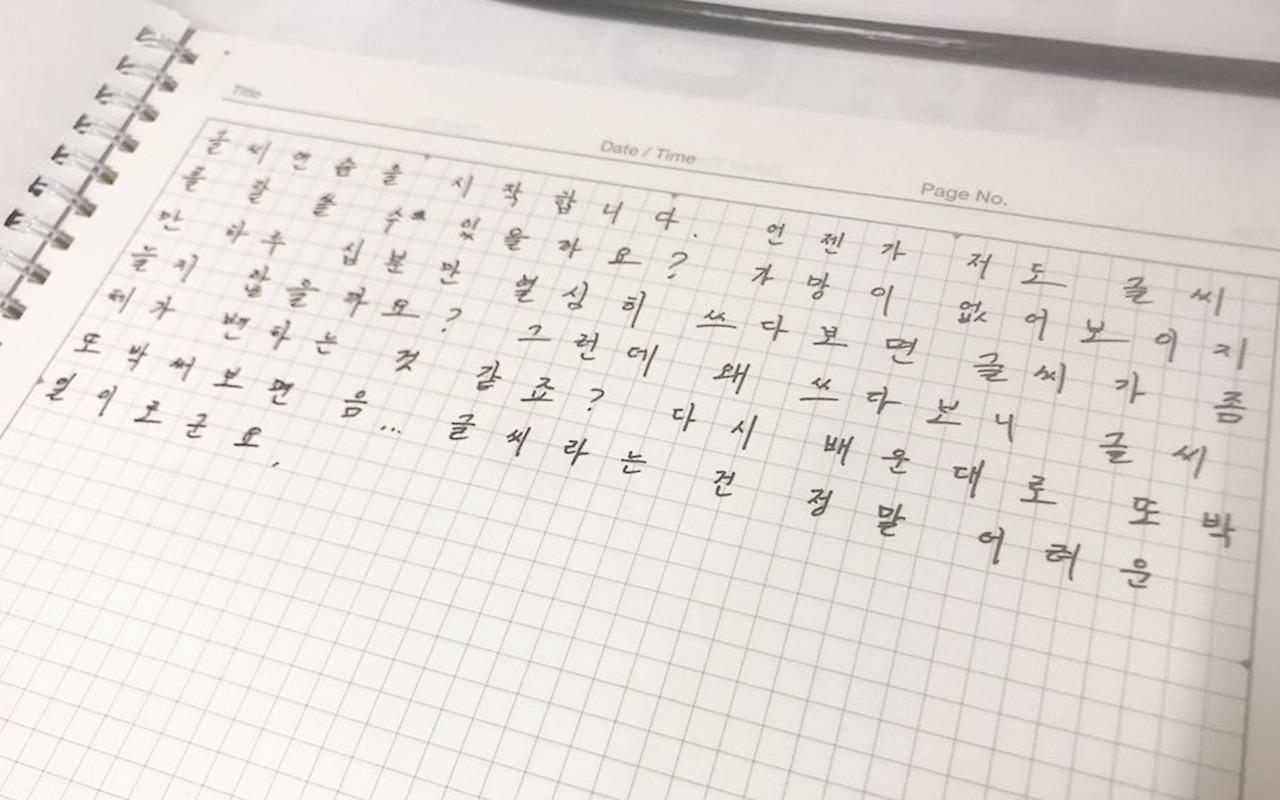 Title
Date / Time
Page No.
글씨연습을 시작합니다. 언젠가 저도 글씨
를 잘 쓸 수 있을까요? 가망이 없어보이지
만 하루 십분만 열심히 쓰다보면 글씨가 좀
늘지 않을까요? 그런데 왜 쓰다보니 글씨
체가 변하는 것 같죠? 다시 배운대로 또박
또박써보면 음... 글씨라는 건 정말 어려운
일이로군요.